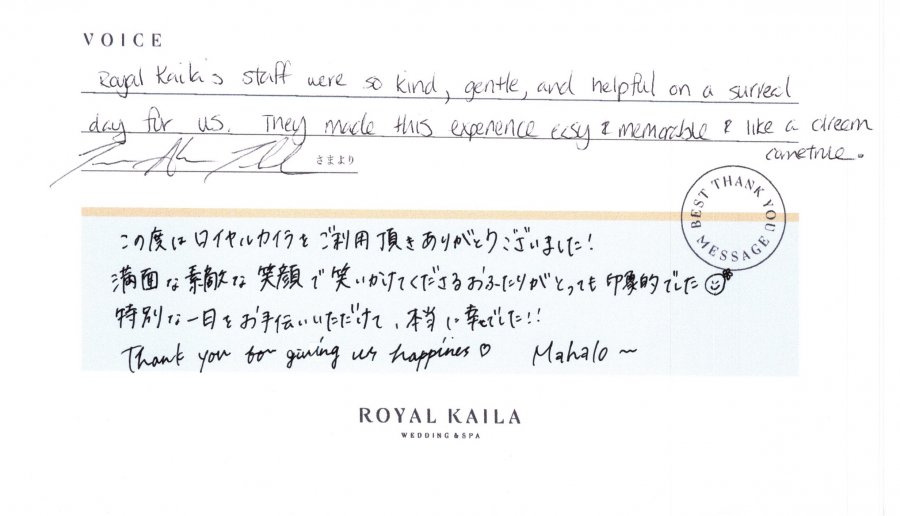 VOICE
Royal Kaila's staff were so kind, gentle, and helpful on a surreal
day for us. They made this experience easy & memorable & like a dream
come true.
さまより
BEST THANK YOU MESSAGE
この度はロイヤルカイラをご利用頂きありがとうございました!
満面な素敵な笑顔で笑いかけてくださるおふたりがとっても印象的でした
特別な一日をお手伝いいただけて、本当に幸せでした!!
Thank you for giving us happines♡ Mahalo〜
ROYAL KAILA
WEDDING & SPA